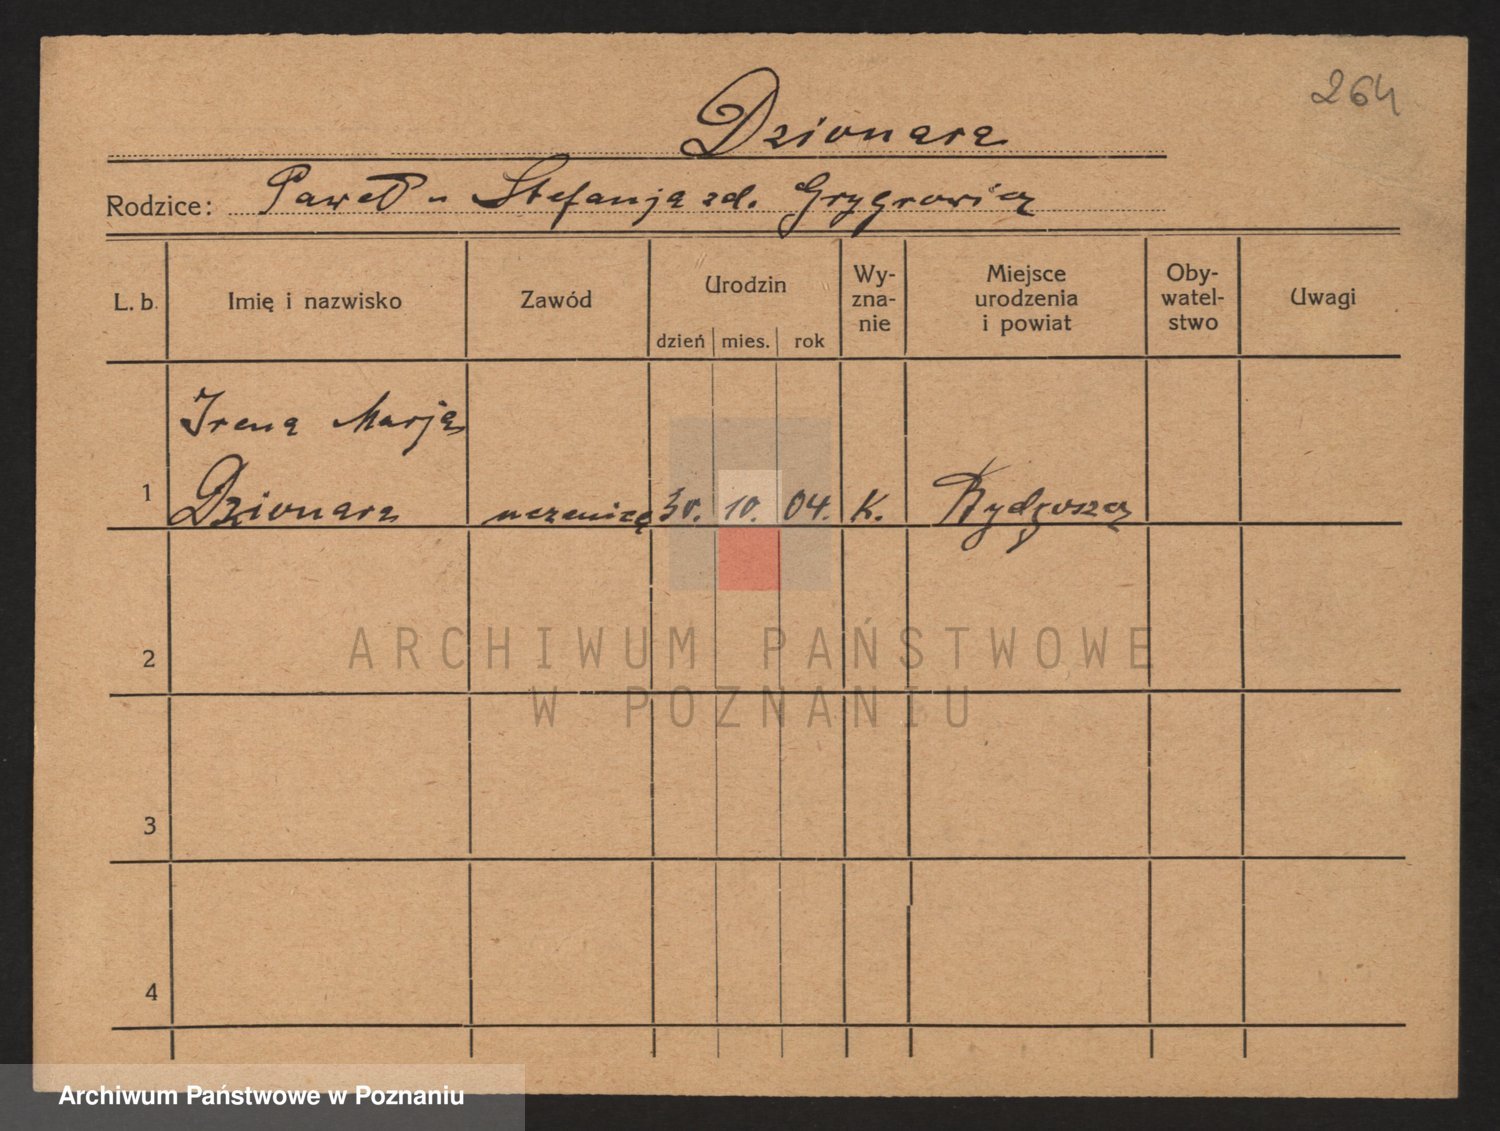 264
Dzionara
Rodzice: Paweł u Stefanja zd. Grygrowicz
L. b. Imię i nazwisko Zawód Urodzin dzień mies. rok Wy-zna-nie Miejsce urodzenia i powiat Oby-watel-stwo Uwagi
Irena Marja
1 Dzionara uczenica 30. 10. 04. K. Bydgoszcz
2
ARCHIWUM PAŃSTWOWE
W POZNANIU
3
4
Archiwum Państwowe w Poznaniu